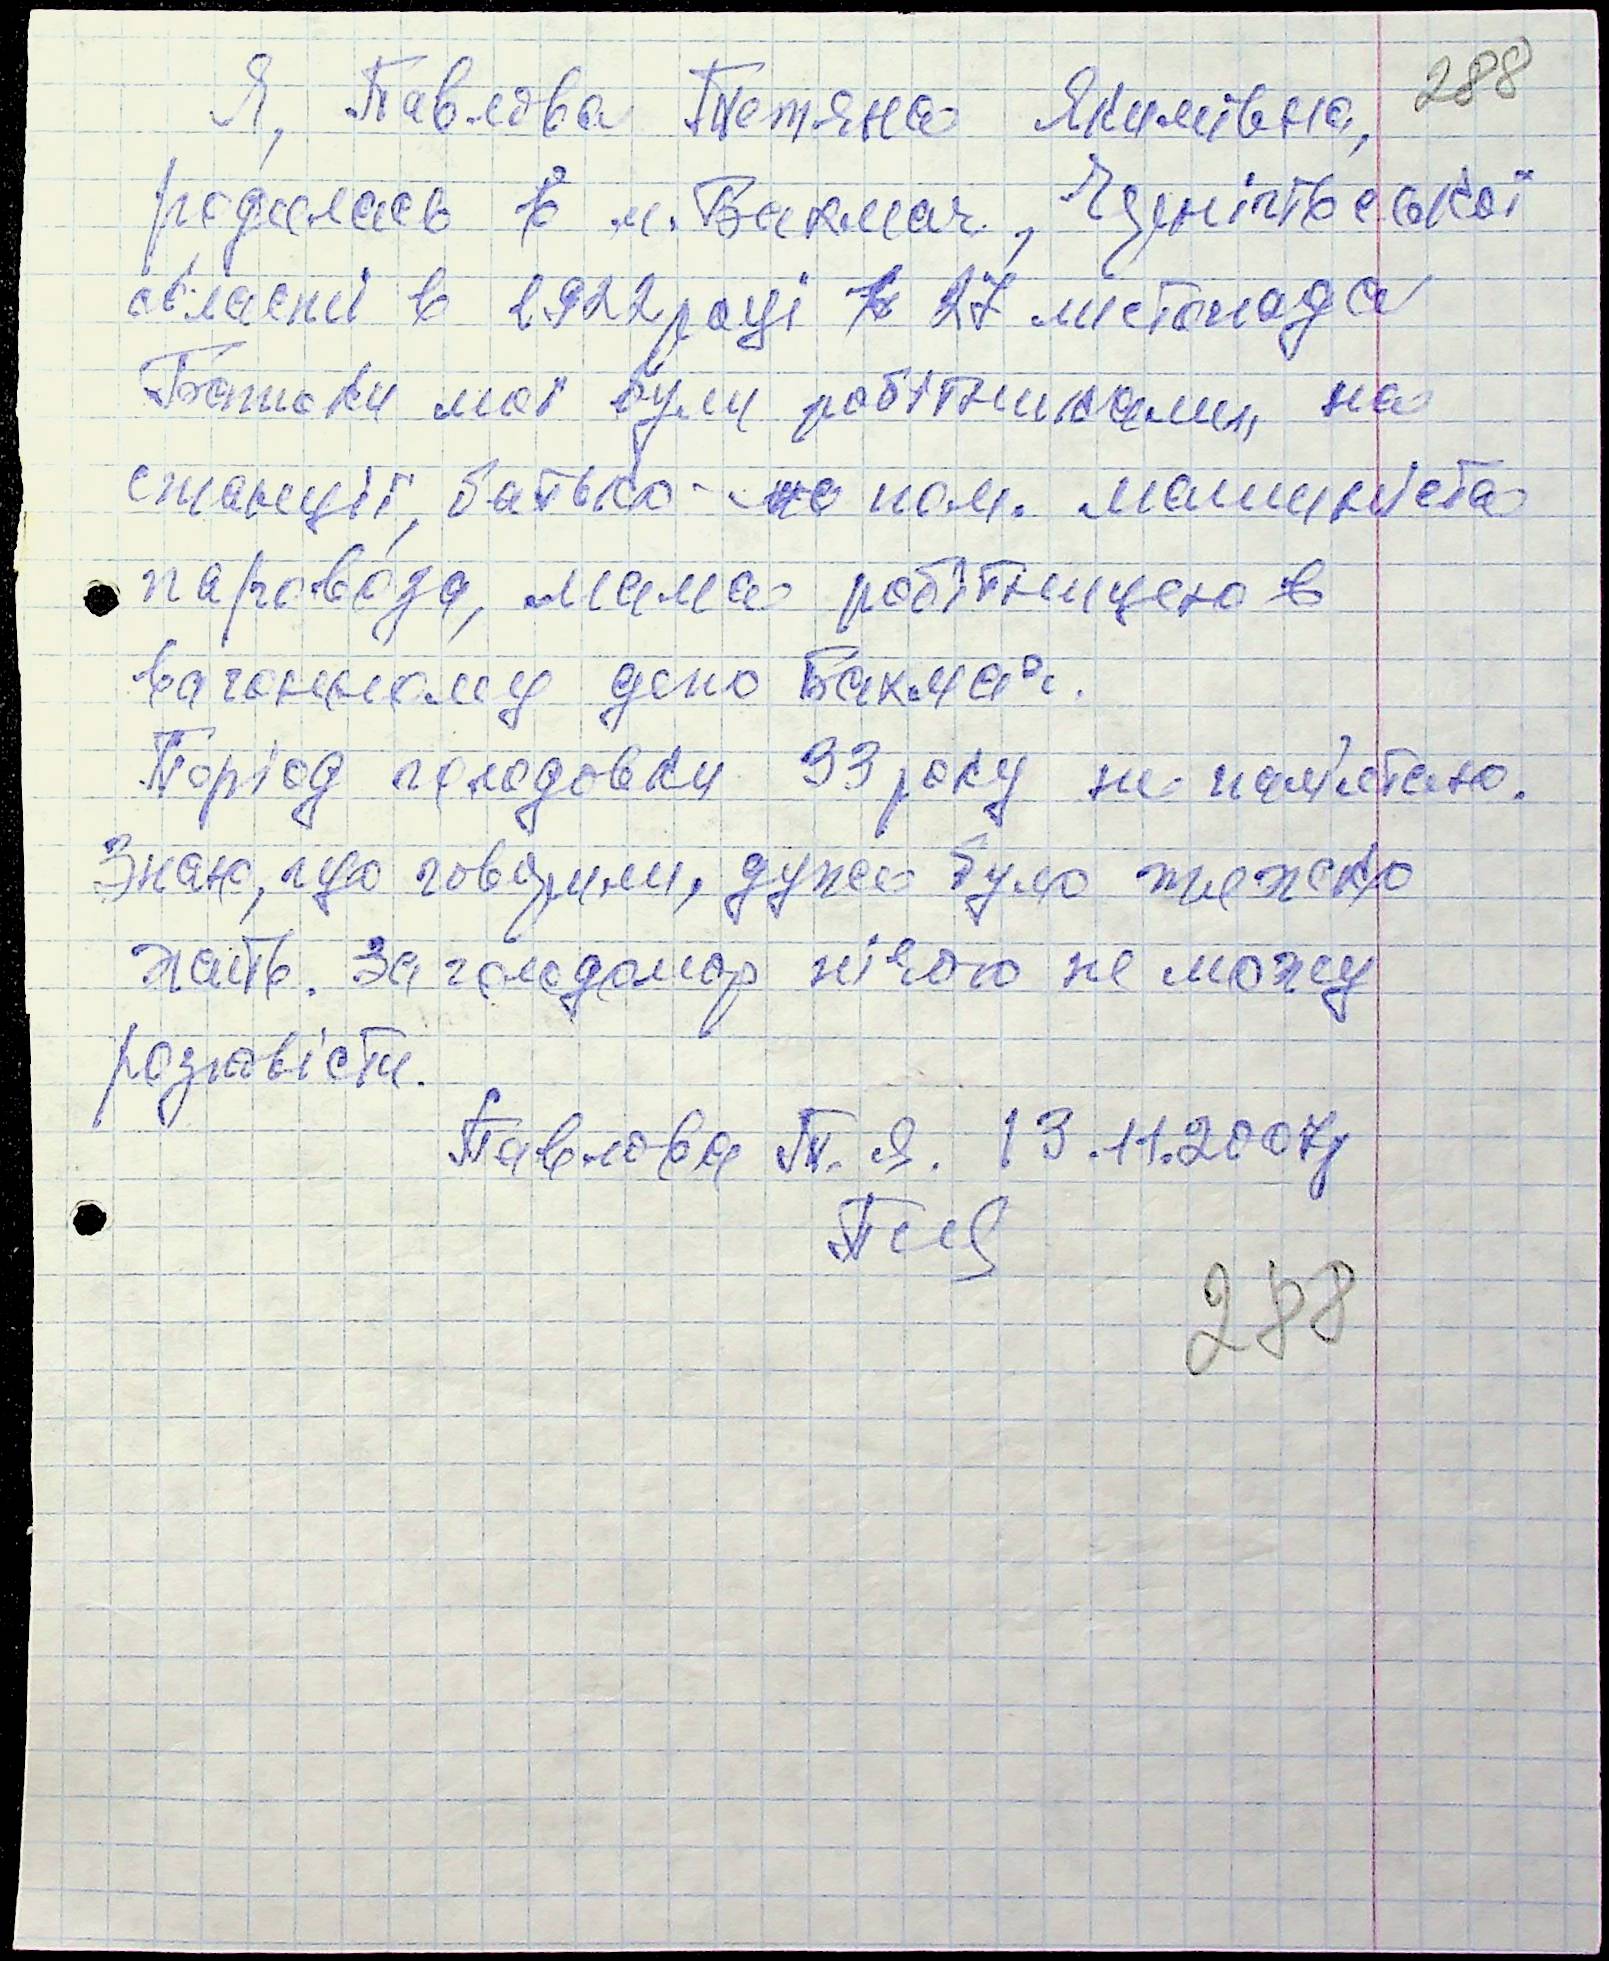 288
Я, Павлова Тетяна Якимівна,
родилась в м. Бахмач, Чернігівської
області в 1922 році 27 листопада
Батьки мої були робітниками, на
станції, батько - пом. машиніста
паровоза, мама робітницею в
вагонному депо Бахмач.
Період голодовки 33 року не пам'ятаю.
Знаю, що говорили, дуже було тяжко
жить. За голодомор нічого не можу
розповісти.
Павлова Т. Я. 13.11.2007р
288